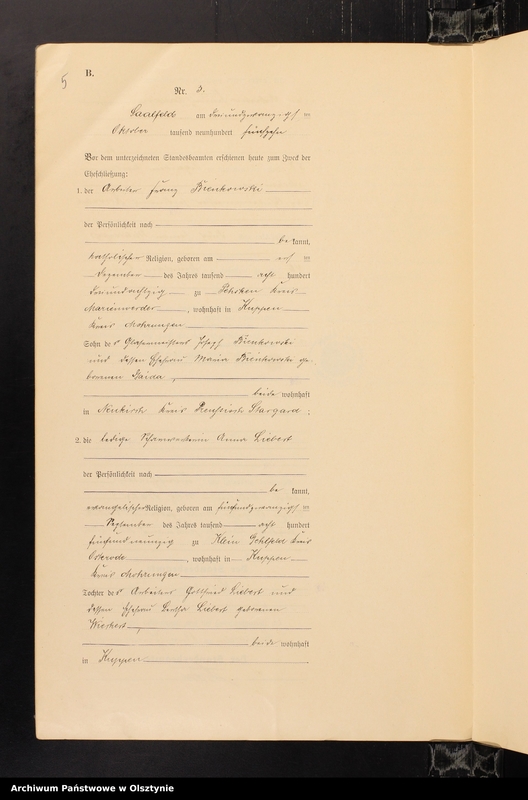 5
B.
Nr. 3.
Saalfeld am dreiundzwanzigsten
Oktober tausend neunhundert fünfzehn
Vor dem unterzeichneten Standesbeamten erschienen heute zum Zweck der
Eheschließung:
1. der Arbeiter Franz Bienkowski
der Persönlichkeit nach
be kannt,
katholischer Religion, geboren am
Dezember des Jahres tausend acht hundert
dreiundachtzig zu Kreis
Marienwerder, wohnhaft in Kuppen
Kreis Mohrungen
Sohn des Joseph Bienkowski
und dessen Ehefrau Maria Bienkowski ge-
bornen Gaida,
beide wohnhaft
in Neukirch Kreis Preußisch Stargard;
2. die ledige Scharwerkerin Anna Liebert
der Persönlichkeit nach
be kannt,
evangelischer Religion, geboren am fünfundzwanzigsten
September des Jahres tausend acht hundert
fünfundneunzig zu Klein Kreis
Osterode, wohnhaft in Kuppen
Kreis Mohrungen
Tochter des Arbeiters Gottfried Liebert und
dessen Ehefrau Liebert gebornen
beide wohnhaft
in Kuppen
Archiwum Państwowe w Olsztynie